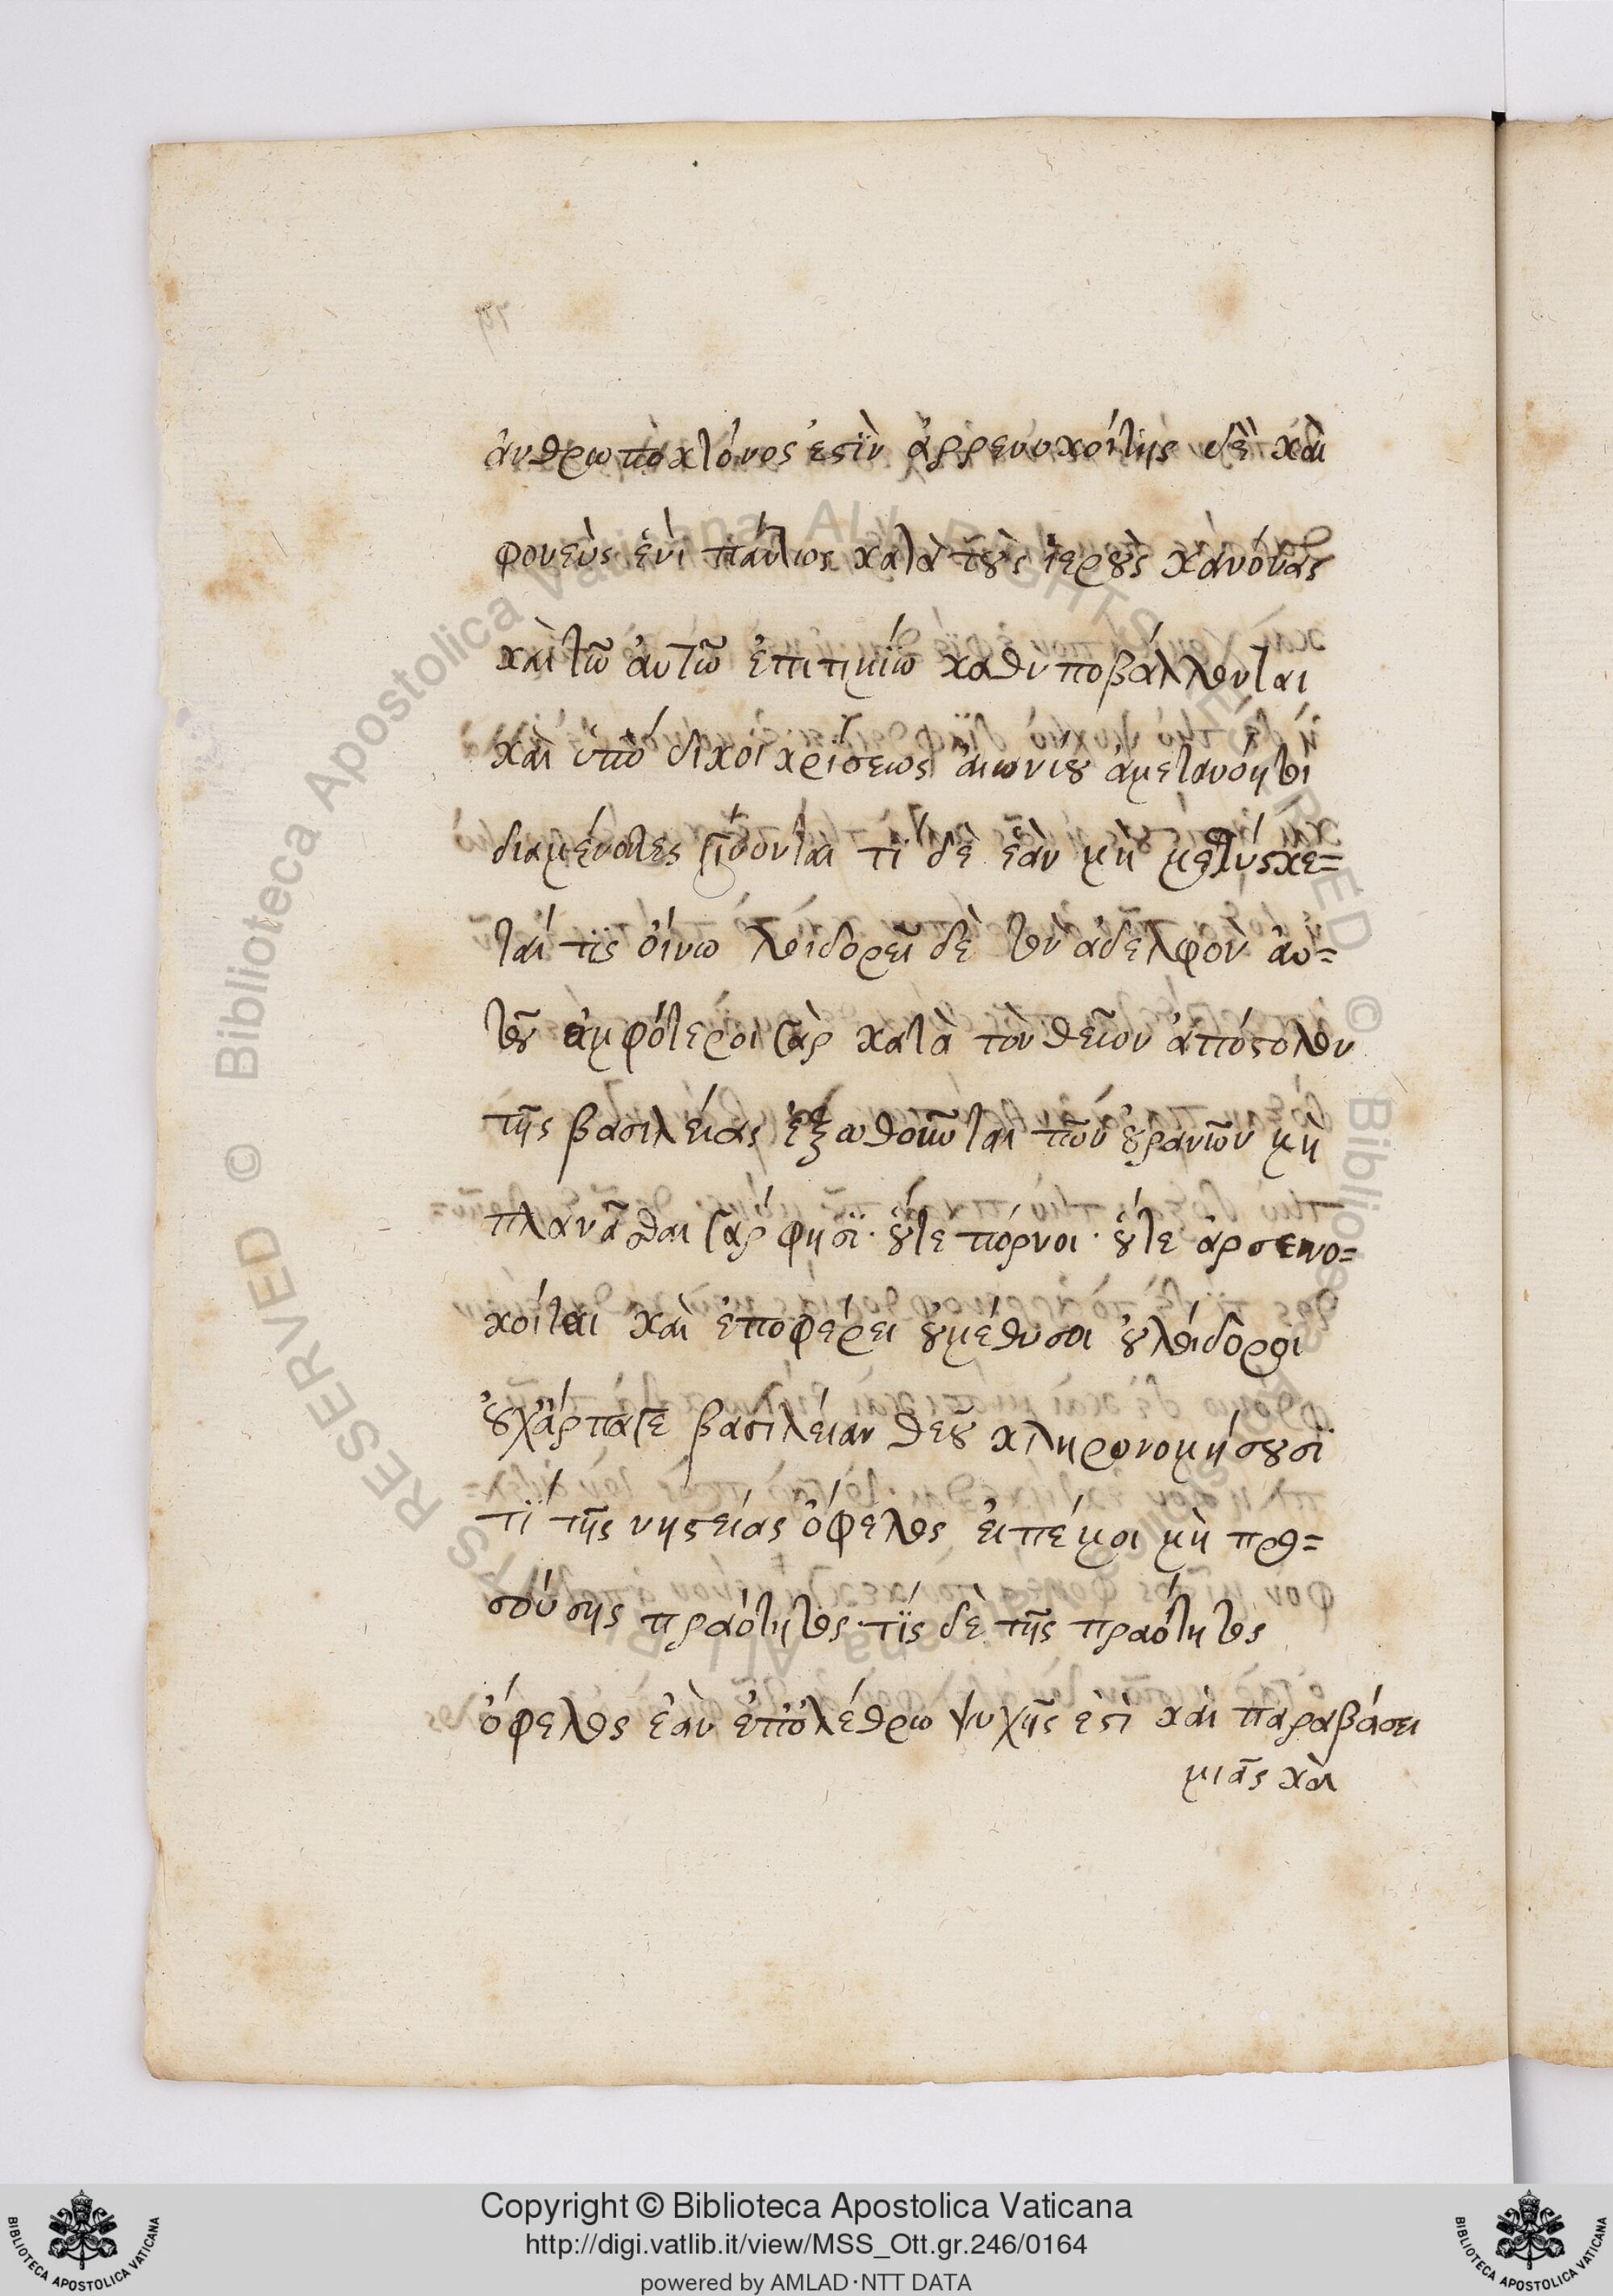 ἀνθρωποκτόνος ἐστὶν ἀρρενοκοίτης δὲ καὶ
φονεὺς ἑνὶ πάντως κατὰ τοὺς ἱεροὺς κανόνας
καὶ τῶ αὐτῶ ἐπιτιμίω καθυποβάλλονται
καὶ ὑπὸ δικοι κρίσεως αἰωνίου ἀμετανόητοι
διαμένοντες γίνονται τί δὲ ἐὰν μὴ μεθύσκε=
ταί τις οἴνω λοιδορεῖ δὲ τὸν ἀδελφὸν αὐ=
τοῦ ἀμφότεροι γὰρ κατὰ τὸν θεῖον ἀπόστολον
τῆς βασιλείας ἐξωθοῦνται τῶν οὐρανῶν μὴ
πλανᾶσθαι γάρ φησι· οὔτε πόρνοι· οὔτε ἀρσενο=
κοίται καὶ ἐποφέρει οὐ μέθυσοι οὐ λοίδοροι
οὐχ ἅρπαγε βασιλείαν θεοῦ κληρονομήσουσι
τί τῆς νηστείας ὄφελος εἰπέ μοι μὴ προ=
σούσης πραότητος· τίς δὲ τῆς πραότητος
ὄφελος ἐὰν ἐπ' ὀλέθρω ψυχῆς ἐστὶ καὶ παραβάσει
μιᾶς καὶ
Copyright © Biblioteca Apostolica Vaticana
http://digi.vatlib.it/view/MSS_Ott.gr.246/0164
powered by AMLAD·NTT DATA
BIBLIOTECA APOSTOLICA VATICANA
BIBLIOTECA APOSTOLICA VATICANA